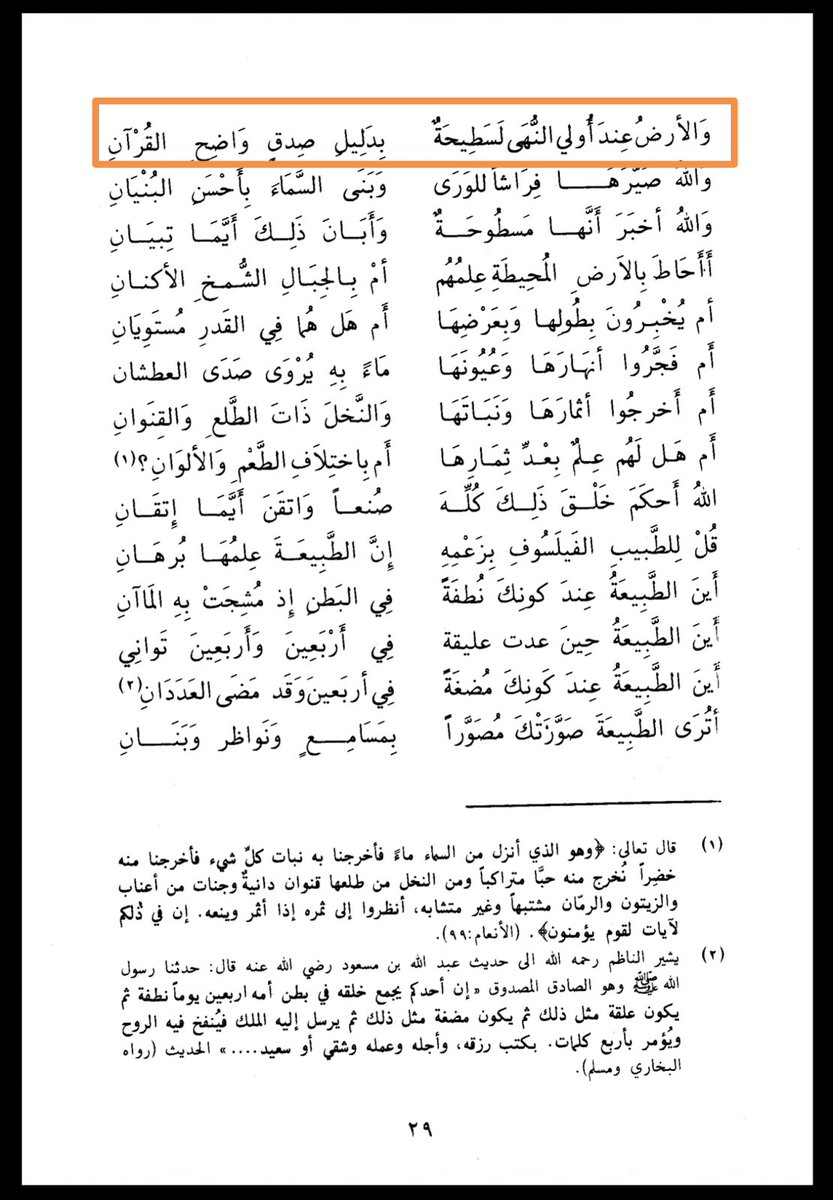 وَالأرضُ عِندَ أُولي النُّهَى لَسَطِيحَةٌ بِدَلِيلِ صِدقٍ وَاضِحِ القُرْآنِ
وَاللهُ صَيَّرَهَـــا فِرَاشاً للوَرَى وَبَنَى السَّمَاءَ بِأَحْسَنِ البُنْيَانِ
وَاللهُ أخبَرَ أَنَّهـا مَسطُوحَـةٌ وَأَبَانَ ذَلِـكَ أَيَّمَـا تِبيَـانِ
أَأَحَاطَ بِالأَرضِ المُحِيطَةِ عِلمُهُم أمْ بِـالجِبَالِ الشُّمـخِ الأكنـانِ
أم يُخْبِرُونَ بِطُولِها وَبِعَرْضِهَا أَم هَل هُمَا فِي القَدرِ مُستَوِيَانِ
أَم فَجَّرُوا أنهَارَهَا وَعُيُونَهَا مَاءً بِهِ يُرْوَى صَدَى العطشان
أَم أَخرجُوا أثمَارَهَا وَنَبَاتَهَا وَالنَّخلَ ذَاتَ الطَّلعِ وَالقِنوَانِ
أَم هَل لَهُم عِلمٌ بِعْدِّ ثِمَارِهَا أَم بِاختِلَافِ الطَّعْمِ وَالألوَانِ؟(١)
اللهُ أَحكَمَ خَلْـقَ ذَلِـكَ كُلِّـهَ صُنعـاً وَاتقَنَ أَيَّمَـا إِتقَـانِ
قُلْ لِلطَّبِيبِ الفَيلَسُوفِ بِزَعْمِهِ إِنَّ الطَّبِيعَـةَ عِلمُهَـا بُرهَـانِ
أَينَ الطَّبِيعَةُ عِندَ كونِكَ نُطفَةً فِي البَطنِ إِذ مُشِجَتْ بِهِ المَاآنِ
أَينَ الطَّبِيعَةُ حِينَ عدت عليقة فِي أَرْبَعِينَ وَأَربَعِينَ تَوانِي
أَينَ الطَّبِيعَةُ عِندَ كَونِكَ مُضغَةً فِي أربَعينَ وَقَد مَضَى العَدَدَانِ(٢)
أتُرَى الطَّبِيعَةَ صَوَّرَتْكَ مُصَوَّراً بِمَسَامِـــعٍ وَنَواظر وَبَنَـــانِ
(١) قال تعالى: ﴿وهو الذي أنزل من السماء ماءً فأخرجنا به نبات كلِّ شيء فأخرجنا منه
خضِراً نُخرج منه حبًّا متراكباً ومن النخل من طلعها قنوان دانيةٌ وجنات من أعناب
والزيتون والرمّان مشتبهاً وغير متشابه، أنظروا إلى ثمره إذا أثمر وينعه. إن في ذٰلكم
لآيات لقوم يؤمنون﴾. (الأنعام:٩٩).
(٢) يشير الناظم رحمه الله الى حديث عبد الله بن مسعود رضي الله عنه قال: حدثنا رسول
الله ﷺ وهو الصادق المصدوق «إن أحدكم يجمع خلقه في بطن أمه اربعين يوماً نطفة ثم
يكون علقة مثل ذلك ثم يكون مضغة مثل ذلك ثم يرسل إليه الملك فيُنفخ فيه الروح
ويُؤمر بأربع كلمات. بكتب رزقه، وأجله وعمله وشقي أو سعيد....» الحديث (رواه
البخاري ومسلم).
٢٩